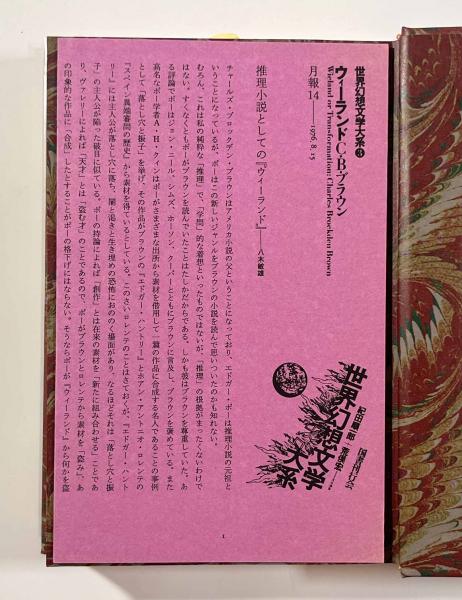 世界幻想文学大系❸
ウィーランド C・B・ブラウン
Wieland or Transformation: Charles Brockden Brown
月報14——1976.8.15
世界幻想文学大系
紀田順一郎 荒俣宏
国書刊行会
推理小説としての『ウィーランド』——八木敏雄
チャールズ・ブロックデン・ブラウンはアメリカ小説の父ということになっており、エドガー・ポーは推理小説の元祖と
いうことになっているが、ポーはこの新しいジャンルをブラウンの小説を読んで思いついたのかも知れない。
むろん、これは私の純粋な「推理」で、「学問」的な着想といったものではないが、「推理」の根拠がまったくないわけで
はない。すくなくともポーがブラウンを読んでいたことはたしかだからである。しかも彼はブラウンを尊重していた。あ
る評論でポーはジョン・ニール、シムズ、ホーソン、クーパーとともにブラウンに言及し、ブラウンを褒めている。また
高名なポー学者A・H・クインはポーがさまざまな出所から素材を借用して一篇の作品に合成する名人であることの事例
として「落とし穴と振子」を挙げ、その作品がブラウンの『エドガー・ハントリー』とホアン・アントニオ・ロレンテの
『スペイン異端審問の歴史』から素材を得ているとしている。このさいロレンテのことはさておくが、『エドガー・ハント
リー』には主人公が落とし穴に落ち、闇と渇きと生き埋めの恐怖におののく場面があり、なるほどそれは「落とし穴と振
子」の主人公が陥った破目に似ている。ポーの持論によれば「創作」とは在来の素材を「新たに組み合わせる」ことであ
り、ヴァレリーによれば「天才」とは「盗む才」のことであるので、ポーがブラウンとロレンテから素材を「盗み」、あ
の印象的な作品に「合成」したとすることがポーの格下げにはならない。そうならポーが『ウィーランド』から何かを盗
1